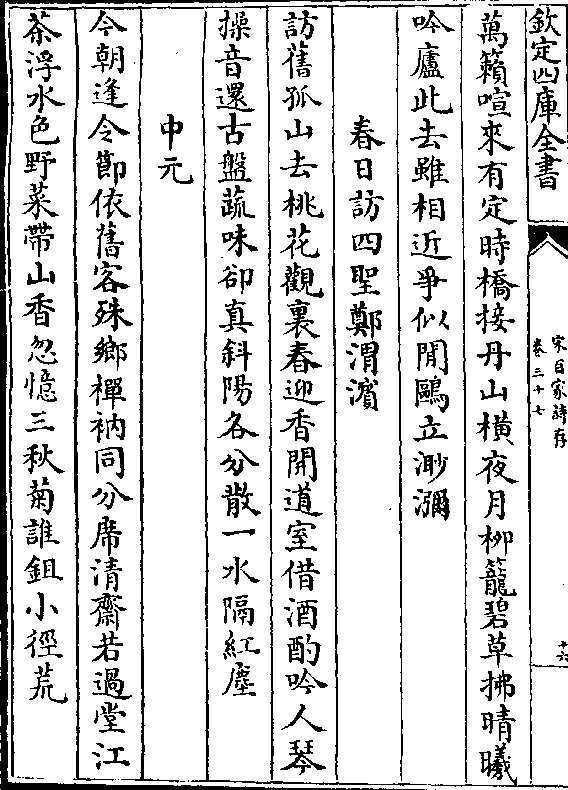 欽定四庫全書
宋百家詩存
卷三十七
十六
萬籟喧來有定時橋接丹山橫夜月栁籠碧草拂晴曦
吟廬此去雖相近爭似閒鷗立渺瀰
春日訪四聖鄭渭濱
訪舊孤山去桃花觀裏春迎香開道室借酒酌吟人琴
操音還古盤蔬味卻真斜陽各分散一水隔紅塵
中元
今朝逢令節依舊客殊鄉禪衲同分席清齋若過堂江
茶浮水色野菜帶山香忽憶三秋菊誰鉏小徑荒